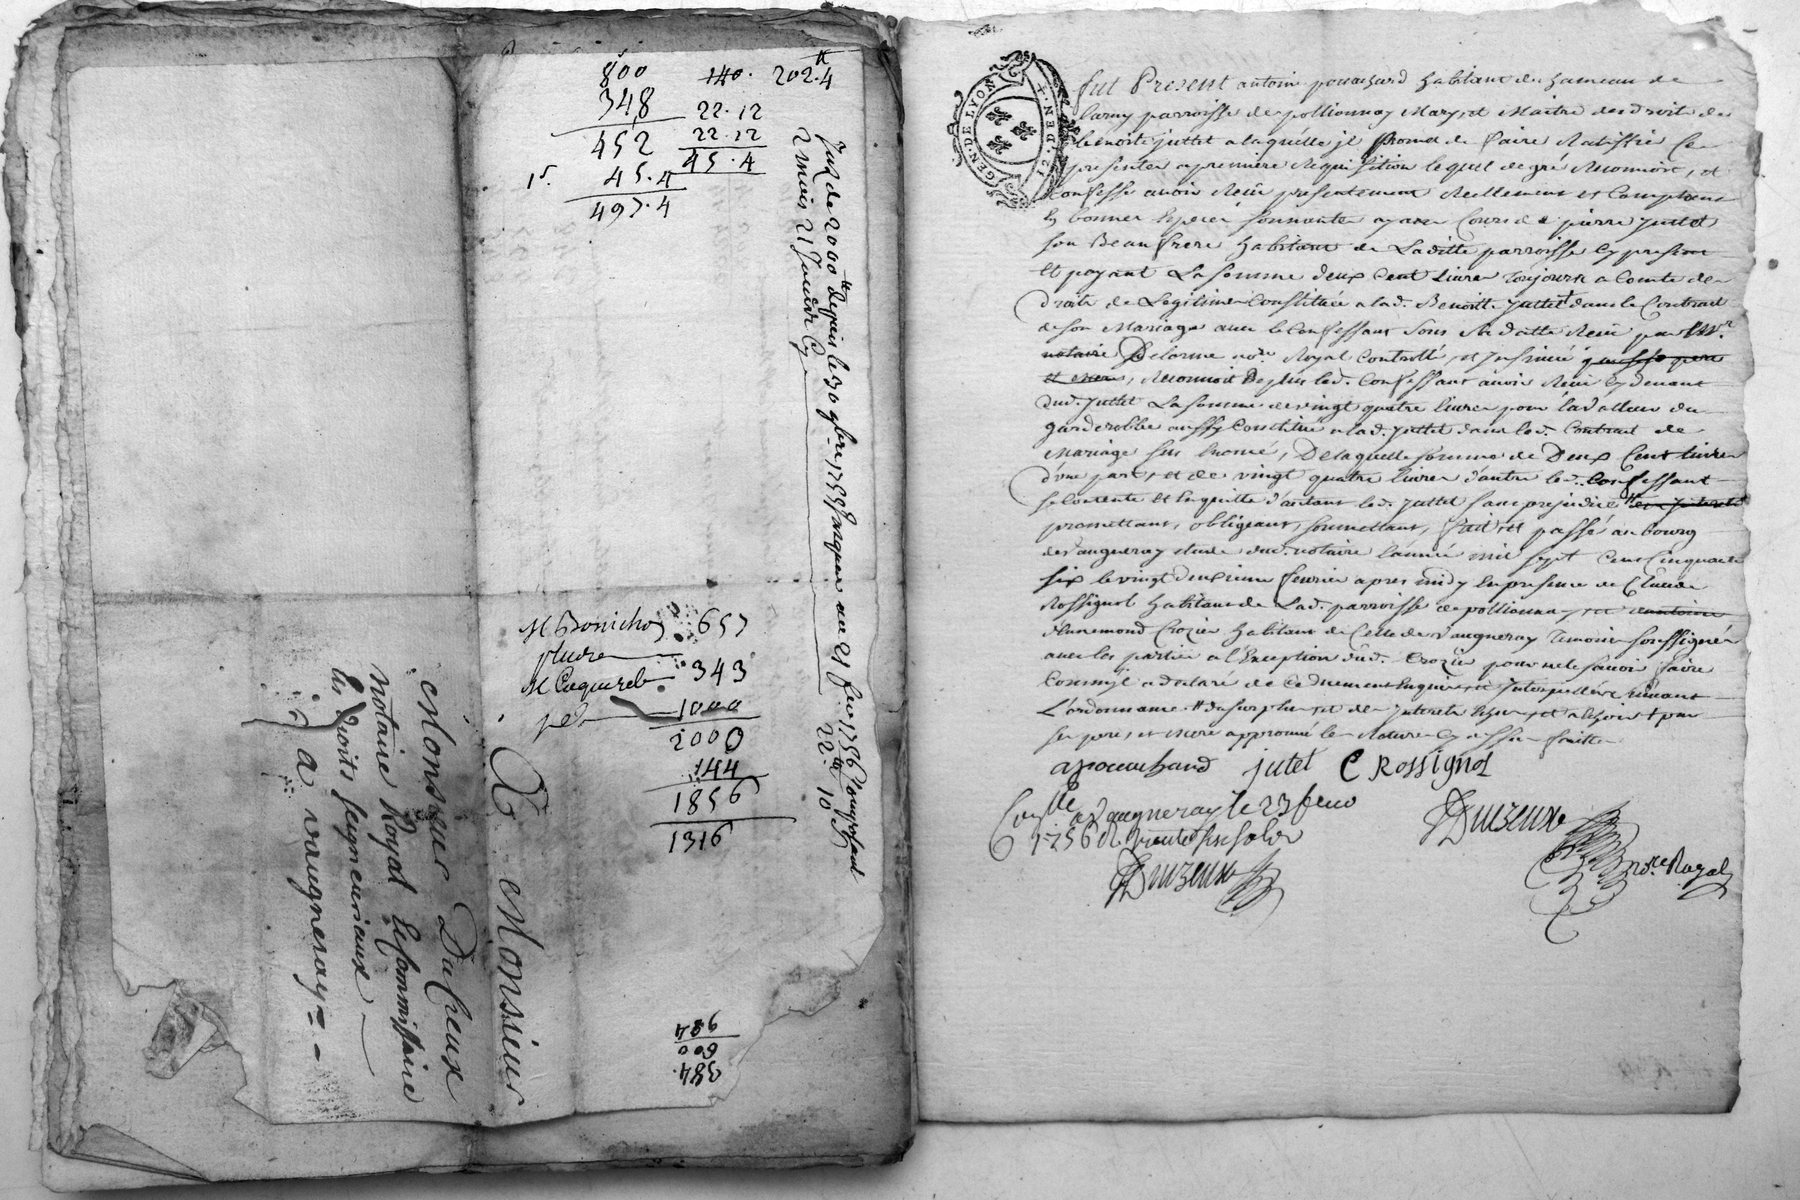 800
348
452
1s. 45.4
497.4
140.
22.12
22.12
45.4
202.4
Inz de 2000tt depuis le 30 9bre 1755 jusques au 21 fev 1756
2 mois 21 jours Cy 22tt 10s
M Bonichon 657
343
1000
2000
144
1856
1316
384.
600
984
A Monsieur
Monsieur Ducreux
notaire Royal Et Commissaire
Les Droits seigneuriaux
a vaugneray
GEN. DE LYON
12. DEN.
fut Present antoine pouchard habitant du hameau de
larny parroisse de pollionnay Mary et Maitre des droits de
benoite juttet a laquelle il promet de faire Ratiffier Ces
presentes a premiere Requisition lequel de gré Reconnoit, et
Confesse avoir Reçu presentement Reellement et Comptant
En bonnes Especes sonnantes ayant Cours de pierre juttet
son Beaufrere habitant de Laditte parroisse Cy present
Et payant La somme deux Cent livres toujours a Comte des
Droits de Legitime Constituée a lad. Benoitte juttet dans le Contract
de son Mariage avec le Confessant sous sa datte Reçu par Mr.
notaire Delorme nore Royal Controllé, et Insinué
Reconnoit de plus led. Confessant avoir Reçu Cy devant
dud. juttet La somme de vingt quatre livres pour la valleur du
garderobbe aussy Constitué a lad. juttet dans led. Contract de
Mariage sus Enoncé, De laquelle somme de Deux Cent livres
d'une part, et de vingt quatre livres d'autre led. Confessant
se Contente Et En quitte d'autant led. juttet sans prejudice
promettant, obligeant, soumettant, fait et passé au bourg
de vaugneray etude dud. notaire l'année mil sept Cent Cinquante
six le vingt deuxieme fevrier apres midy En presence de Claude
Rossignol habitant de Lad. parroisse de pollionnay et
d'annemond Crozier habitant de Celle de vaugneray temoins soussignés
avec les parties a l'Exception dud. Crozier pour ne le savoir faire
Comme il a declaré de Ce duement Enquis et Interpellé suivant
L'ordonnance. # du surplus et des Interets
ses pere, et mere approuvé la Rature Cy dessus faitte
apouchard jutet C Rossignol
Conlle a vaugneray le 23 fevr
1756
Ducreux
Ducreux
nore Royal